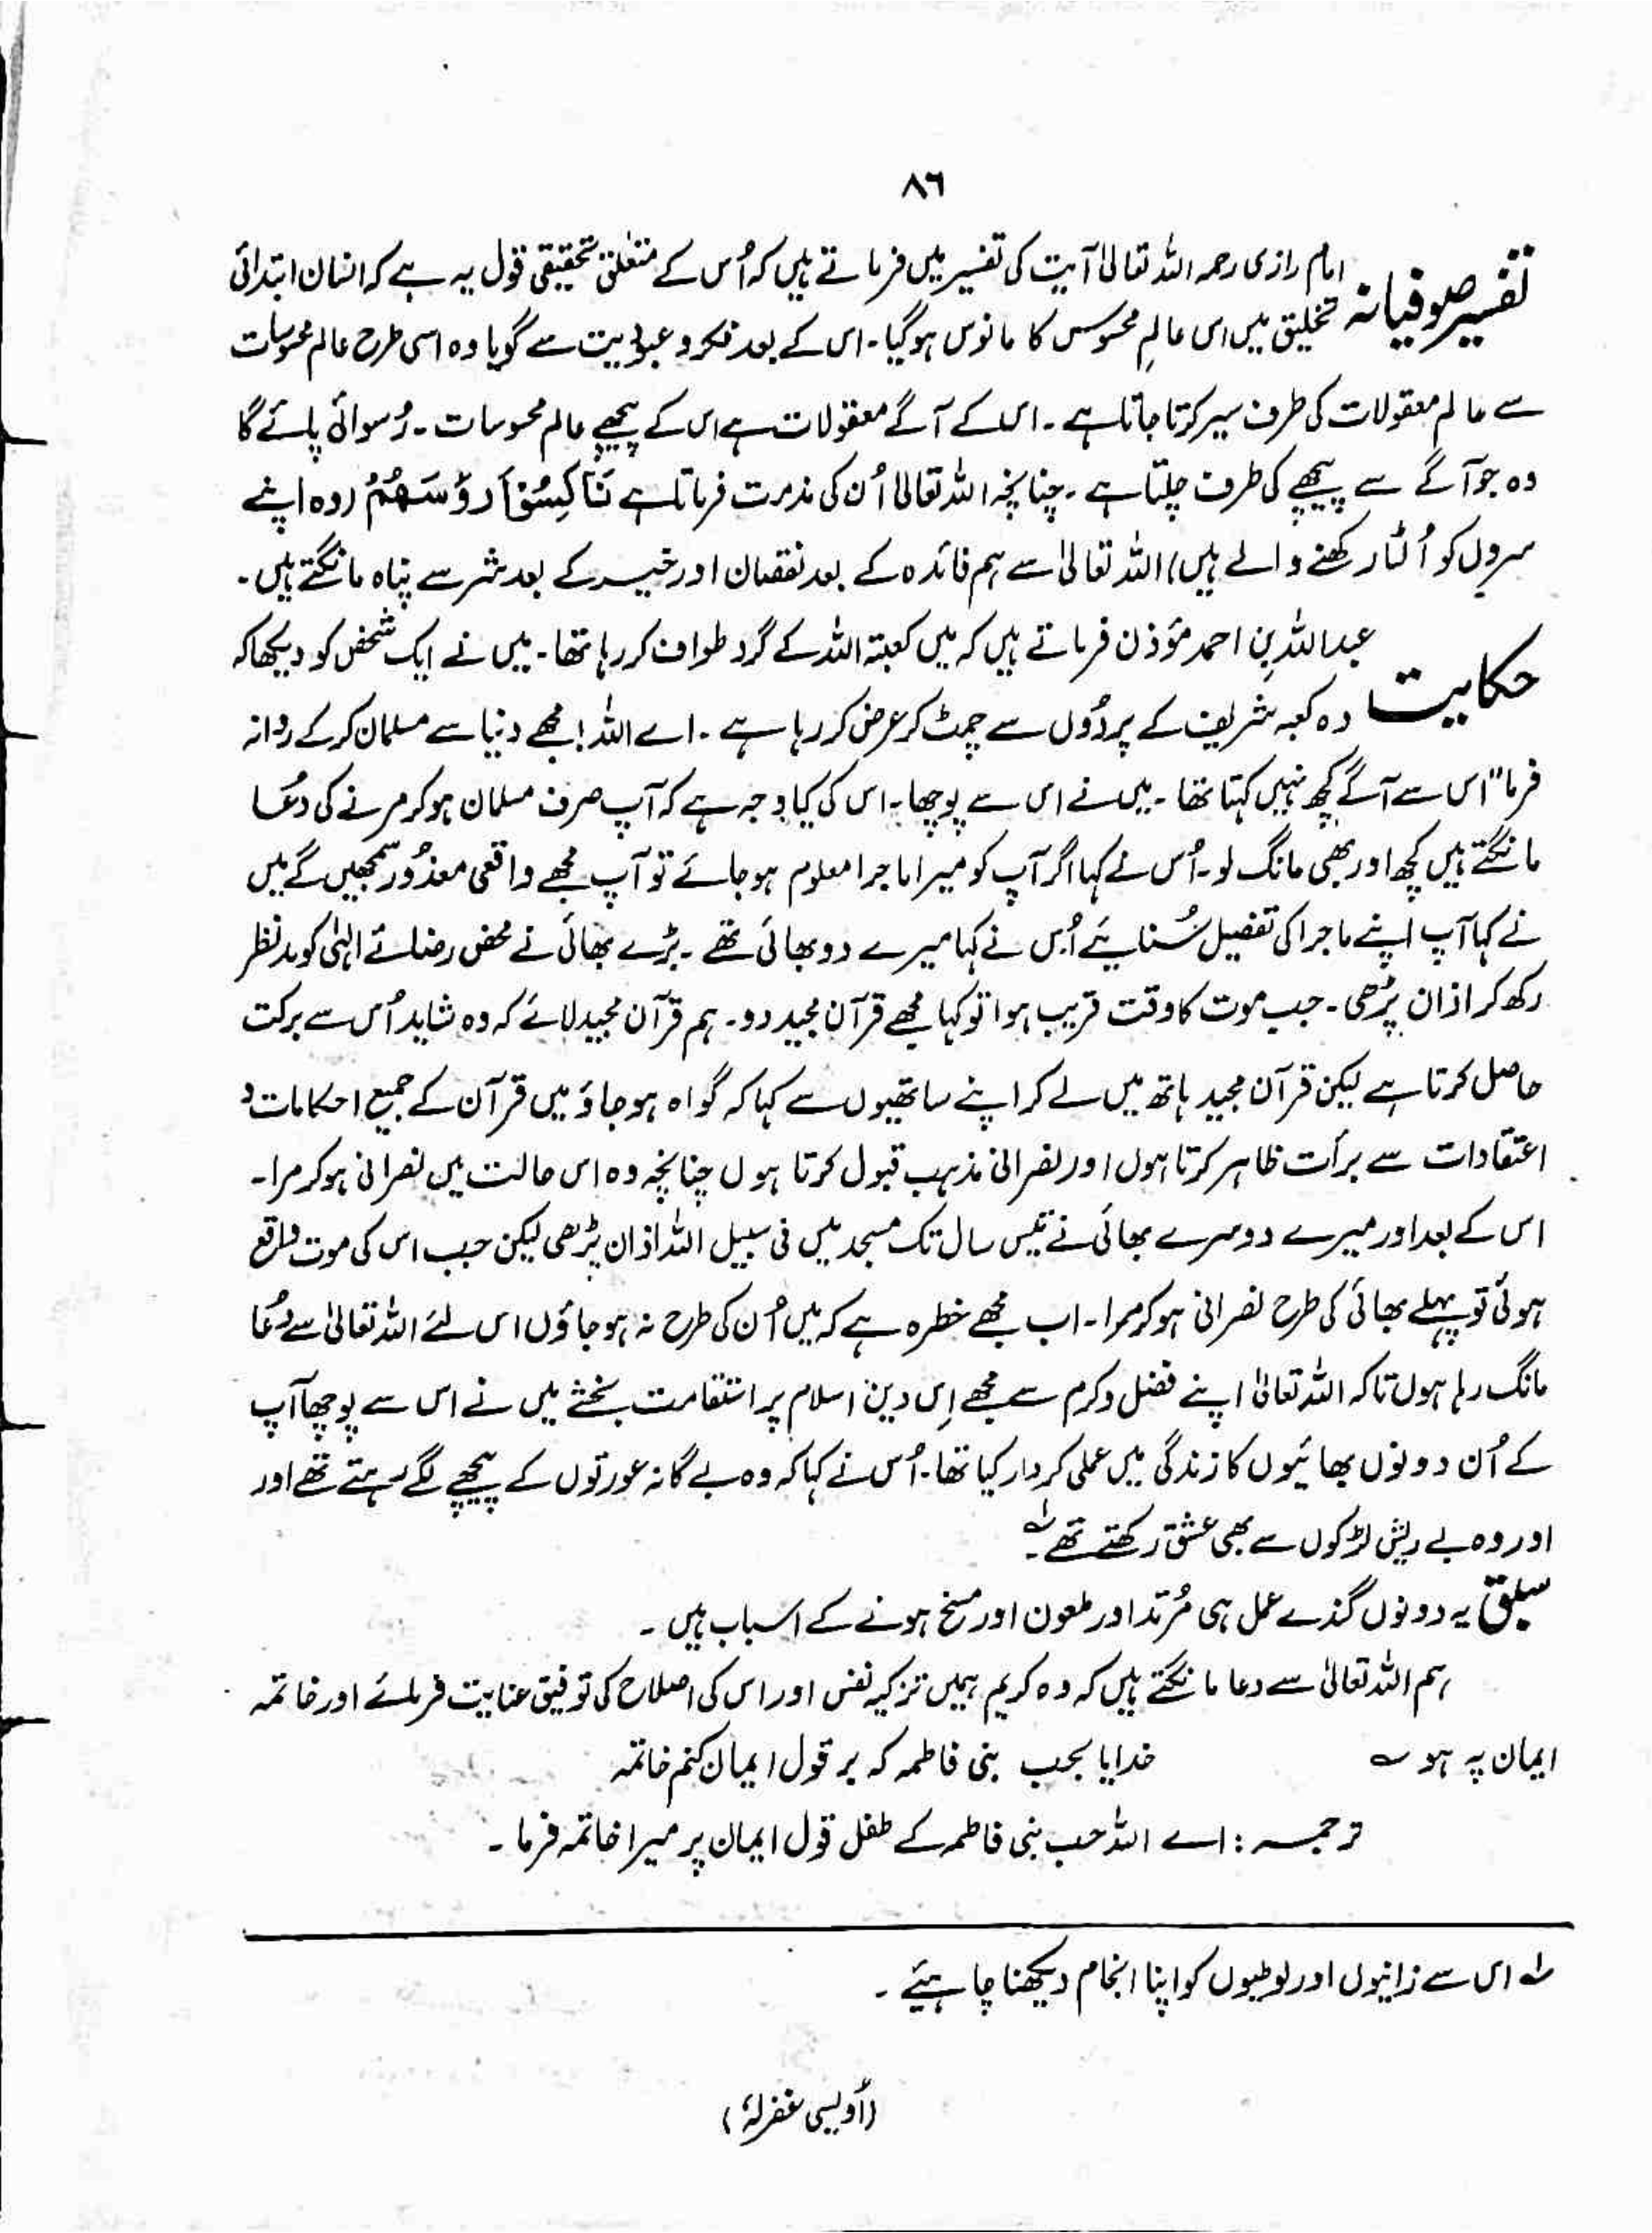 ۸۶
تفسیر صوفیانہ امام رازی رحمہ اللہ تعالیٰ آیت کی تفسیر میں فرماتے ہیں کہ اُس کے متعلق تحقیقی قول یہ ہے کہ انسان ابتدائی
تخلیق میں اس عالمِ محسوس کا مانوس ہو گیا۔ اس کے بعد فکر و عبودیت سے گویا وہ اسی طرح عالم محسوسات
سے عالم معقولات کی طرف سیر کرتا جاتا ہے۔ اس کے آگے معقولات ہے اس کے پیچھے عالم محسوسات۔ رُسوائی پائے گا
وہ جو آگے سے پیچھے کی طرف چلتا ہے۔ چنانچہ اللہ تعالیٰ اُن کی مذمت فرماتا ہے نَاكِسُوْا رُءُوْسِهِمْ (وہ اپنے
سروں کو اُلٹا رکھنے والے ہیں) اللہ تعالیٰ سے ہم فائدہ کے بعد نقصان اور خیر کے بعد شر سے پناہ مانگتے ہیں۔
حکایت عبداللہ بن احمد مؤذن فرماتے ہیں کہ میں کعبۃ اللہ کے گرد طواف کر رہا تھا۔ میں نے ایک شخص کو دیکھا کہ
وہ کعبہ شریف کے پردُوں سے چمٹ کر عرض کر رہا ہے۔ اے اللہ! مجھے دنیا سے مسلمان کر کے روانہ
فرما" اس سے آگے کچھ نہیں کہتا تھا۔ میں نے اس سے پوچھا۔ اس کی کیا وجہ ہے کہ آپ صرف مسلمان ہو کر مرنے کی دعُا
مانگتے ہیں کچھ اور بھی مانگ لو۔ اُس نے کہا اگر آپ کو میرا ماجرا معلوم ہو جائے تو آپ مجھے واقعی معذُور سمجھیں گے میں
نے کہا آپ اپنے ماجرا کی تفصیل سُنایئے اُس نے کہا میرے دو بھائی تھے۔ بڑے بھائی نے محض رضائے الہٰی کو مدنظر
رکھ کر اذان پڑھی۔ جب موت کا وقت قریب ہوا تو کہا مجھے قرآن مجید دو۔ ہم قرآن مجید لائے کہ وہ شاید اُس سے برکت
حاصل کرتا ہے لیکن قرآن مجید ہاتھ میں لے کر اپنے ساتھیوں سے کہا کہ گواہ ہو جاؤ میں قرآن کے جمیع احکامات و
اعتقادات سے برأت ظاہر کرتا ہوں اور نصرانی مذہب قبول کرتا ہوں چنانچہ وہ اس حالت میں نصرانی ہو کر مرا۔
اس کے بعد اور میرے دوسرے بھائی نے تیس سال تک مسجد میں فی سبیل اللہ اذان پڑھی لیکن جب اس کی موت واقع
ہوئی تو پہلے بھائی کی طرح نصرانی ہو کر مرا۔ اب مجھے خطرہ ہے کہ میں اُن کی طرح نہ ہو جاؤں اس لئے اللہ تعالیٰ سے دُعا
مانگ رہا ہوں تاکہ اللہ تعالیٰ اپنے فضل و کرم سے مجھے اِس دین اسلام پر استقامت بخشے میں نے اس سے پوچھا آپ
کے اُن دونوں بھائیوں کا زندگی میں عملی کردار کیا تھا۔ اُس نے کہا کہ وہ بے گانہ عورتوں کے پیچھے لگے رہتے تھے اور
اور وہ بے ریش لڑکوں سے بھی عشق رکھتے تھے ؎۔
سبق یہ دونوں گندے عمل ہی مُرتد اور ملعون اور مسخ ہونے کے اسباب ہیں۔
ہم اللہ تعالیٰ سے دعا مانگتے ہیں کہ وہ کریم ہمیں تزکیہ نفس اور اس کی اصلاح کی توفیق عنایت فرمائے اور خاتمہ
ایمان پہ ہو ؎ خدایا بحب بنی فاطمہ کہ بر قول ایمان کنم خاتمہ
ترجمہ : اے اللہ حب بنی فاطمہ کے طفل قول ایمان پر میرا خاتمہ فرما۔
؎ اس سے زانیوں اور لوطیوں کو اپنا انجام دیکھنا چاہیئے۔
(اُویسی غفرلہٗ)